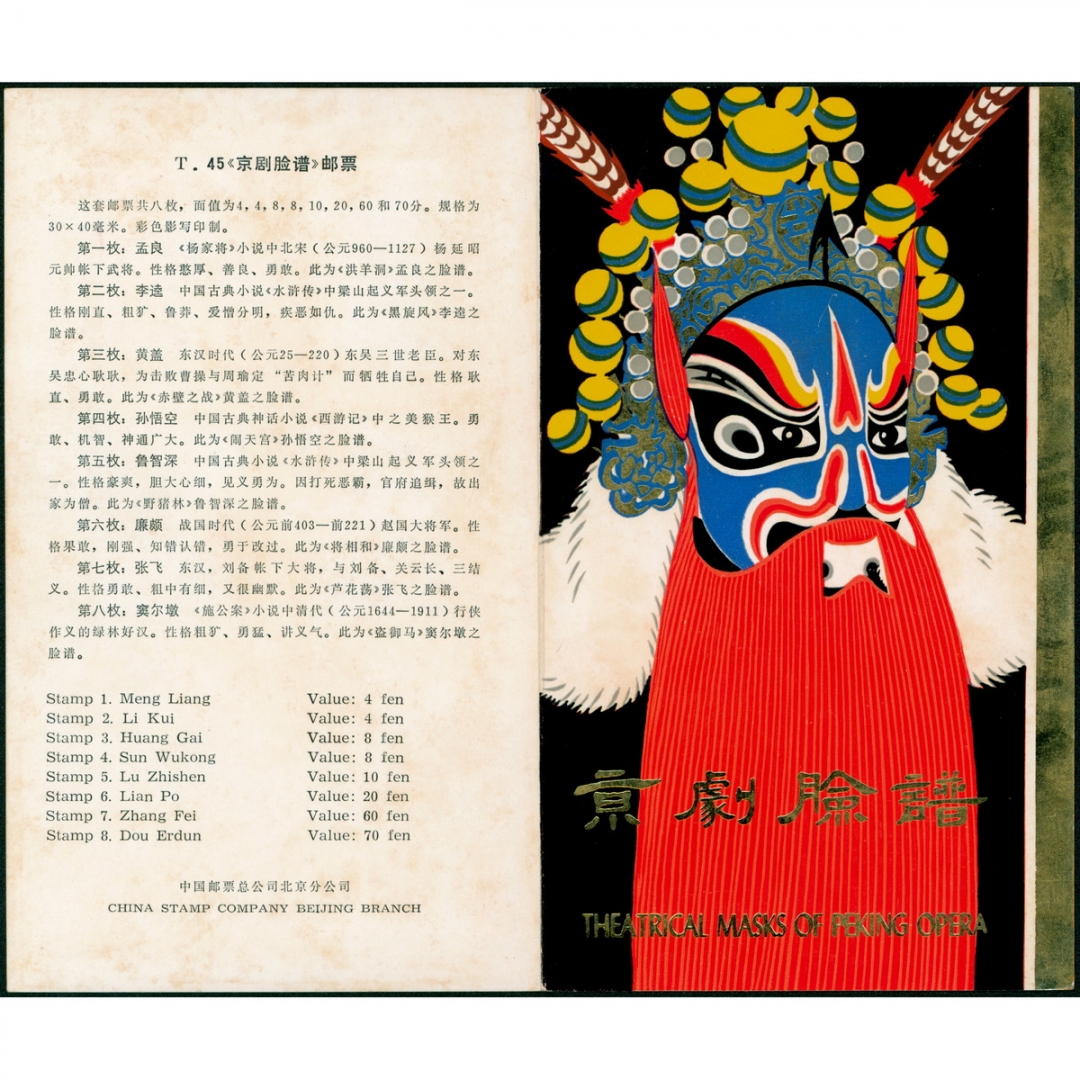 T．45《京剧脸谱》邮票
这套邮票共八枚，面值为4，4，8，8，10，20，60和70分。规格为
30×40毫米。彩色影写印制。
第一枚：孟良　《杨家将》小说中北宋（公元960—1127）杨延昭
元帅帐下武将。性格憨厚、善良、勇敢。此为《洪羊洞》孟良之脸谱。
第二枚：李逵　中国古典小说《水浒传》中梁山起义军头领之一。
性格刚直、粗犷、鲁莽、爱憎分明，疾恶如仇。此为《黑旋风》李逵之
脸谱。
第三枚：黄盖　东汉时代（公元25—220）东吴三世老臣。对东
吴忠心耿耿，为击败曹操与周瑜定“苦肉计”而牺牲自己。性格耿
直、勇敢。此为《赤壁之战》黄盖之脸谱。
第四枚：孙悟空　中国古典神话小说《西游记》中之美猴王。勇
敢、机智、神通广大。此为《闹天宫》孙悟空之脸谱。
第五枚：鲁智深　中国古典小说《水浒传》中梁山起义军头领之
一。性格豪爽，胆大心细，见义勇为。因打死恶霸，官府追缉，故出
家为僧。此为《野猪林》鲁智深之脸谱。
第六枚：廉颇　战国时代（公元前403—前221）赵国大将军。性
格果敢，刚强、知错认错，勇于改过。此为《将相和》廉颇之脸谱。
第七枚：张飞　东汉，刘备帐下大将，与刘备、关云长、三结
义。性格勇敢、粗中有细，又很幽默。此为《芦花荡》张飞之脸谱。
第八枚：窦尔墩　《施公案》小说中清代（公元1644—1911）行侠
作义的绿林好汉。性格粗犷、勇猛、讲义气。此为《盗御马》窦尔墩之
脸谱。
Stamp 1. Meng Liang Value: 4 fen
Stamp 2. Li Kui Value: 4 fen
Stamp 3. Huang Gai Value: 8 fen
Stamp 4. Sun Wukong Value: 8 fen
Stamp 5. Lu Zhishen Value: 10 fen
Stamp 6. Lian Po Value: 20 fen
Stamp 7. Zhang Fei Value: 60 fen
Stamp 8. Dou Erdun Value: 70 fen
中国邮票总公司北京分公司
CHINA STAMP COMPANY BEIJING BRANCH
京劇臉譜
THEATRICAL MASKS OF PEKING OPERA